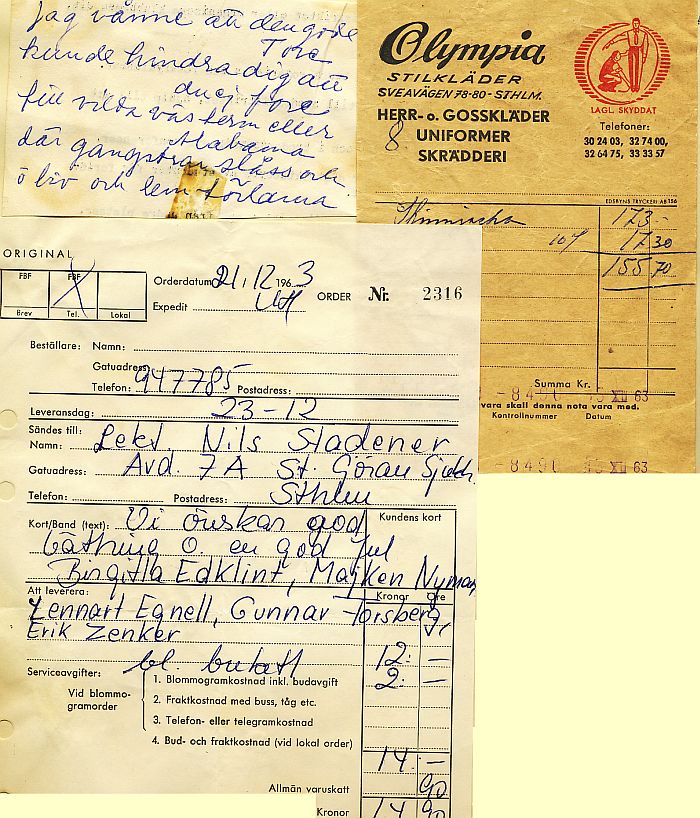 Jag vänne att den gode
Tore
kunde hindra dig att
du ej fore
till vilda västern eller
Alabama
där gangstrar slåss och
ö liv och lem förlama
Olympia
STILKLÄDER
SVEAVÄGEN 78-80 - STHLM.
HERR- o. GOSSKLÄDER
8 UNIFORMER
SKRÄDDERI
LAGL. SKYDDAT
Telefoner:
30 24 03, 32 74 00,
32 64 75, 33 33 57
EDSBYNS TRYCKERI AB 156
173 -
10% 17 30
155 70
Summa Kr.
-8491 XII 63
vara skall denna nota vara med.
Kontrollnummer Datum
-8491 XII 63
ORIGINAL
FBF FBF
Brev Tel. Lokal
Orderdatum 21.12 1963
Expedit
ORDER Nr. 2316
Beställare: Namn:
Gatuadress:
Telefon: 947785 Postadress:
Leveransdag: 23-12
Sändes till:
Namn: Lekt. Nils Stadener
Gatuadress: Avd. 7A St. Göran Sjukh.
Telefon: Postadress: Sthlm
Kort/Band (text): Vi önskar god Kundens kort
bättring o. en god jul
Birgitta Edklint, Majken Nyman
Att leverera: Kronor Öre
Lennart Egnell, Gunnar Forsberg,
Erik Zenker
bl. bukett 12: —
Serviceavgifter:
Vid blommogramorder
1. Blommogramkostnad inkl. budavgift 2: —
2. Fraktkostnad med buss, tåg etc.
3. Telefon- eller telegramkostnad
4. Bud- och fraktkostnad (vid lokal order)
14 —
Allmän varuskatt 90
Kronor 14 90